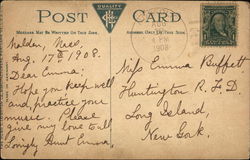 QUALITY
POST CARD
MESSAGE MAY BE WRITTEN ON THIS SIDE.
ADDRESS ONLY ON THIS SIDE.
AUG
PM
1908
Malden, Mass,
Aug. 17th 1908.
Dear Emma:
Hope you keep well
and, practice your
music. Please
give my love to all
Lovingly Aunt Emma.
Miss Emma Buffett
Huntington R.F.D
Long Island,
New York.